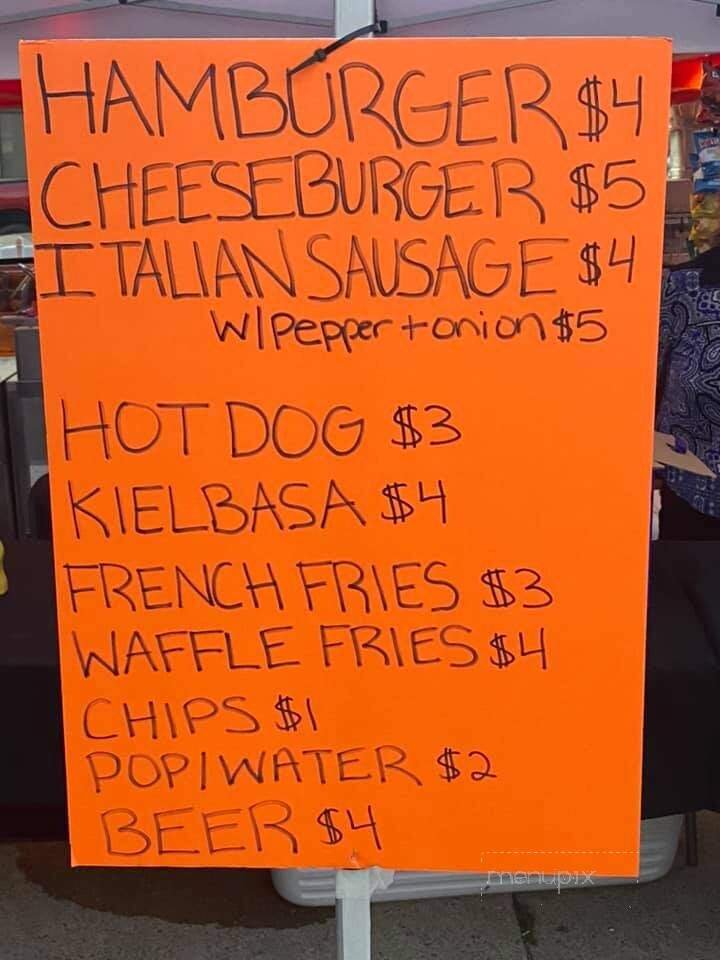 HAMBURGER $4
CHEESEBURGER $5
ITALIAN SAUSAGE $4
W/Pepper + onion $5
HOT DOG $3
KIELBASA $4
FRENCH FRIES $3
WAFFLE FRIES $4
CHIPS $1
POP/WATER $2
BEER $4
menupix